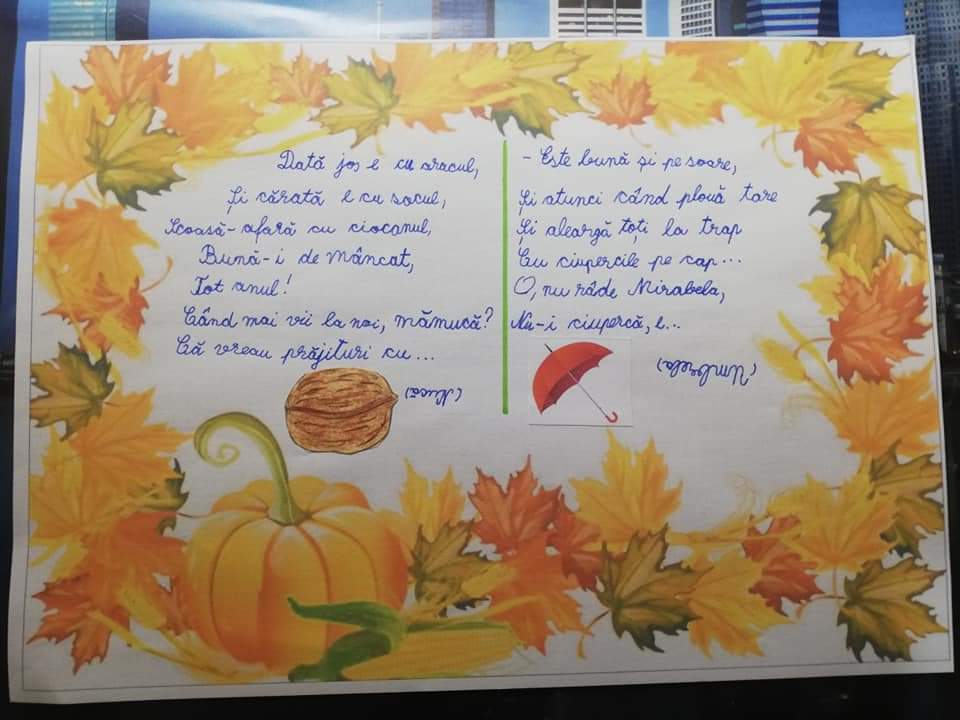 Dată jos e cu aracul,
Și cărată e cu sacul,
Scoasă-afară cu ciocanul,
Bună-i de mâncat,
Tot anul!
Când mai vii la noi, mămucă?
Că vreau prăjituri cu...
(Nuca)
- Este bună și pe soare,
Și atunci când plouă tare
Și aleargă toți la trap
Cu ciupercile pe cap...
O, nu râde Mirabela,
Nu-i ciupercă, e...
(Umbrela)